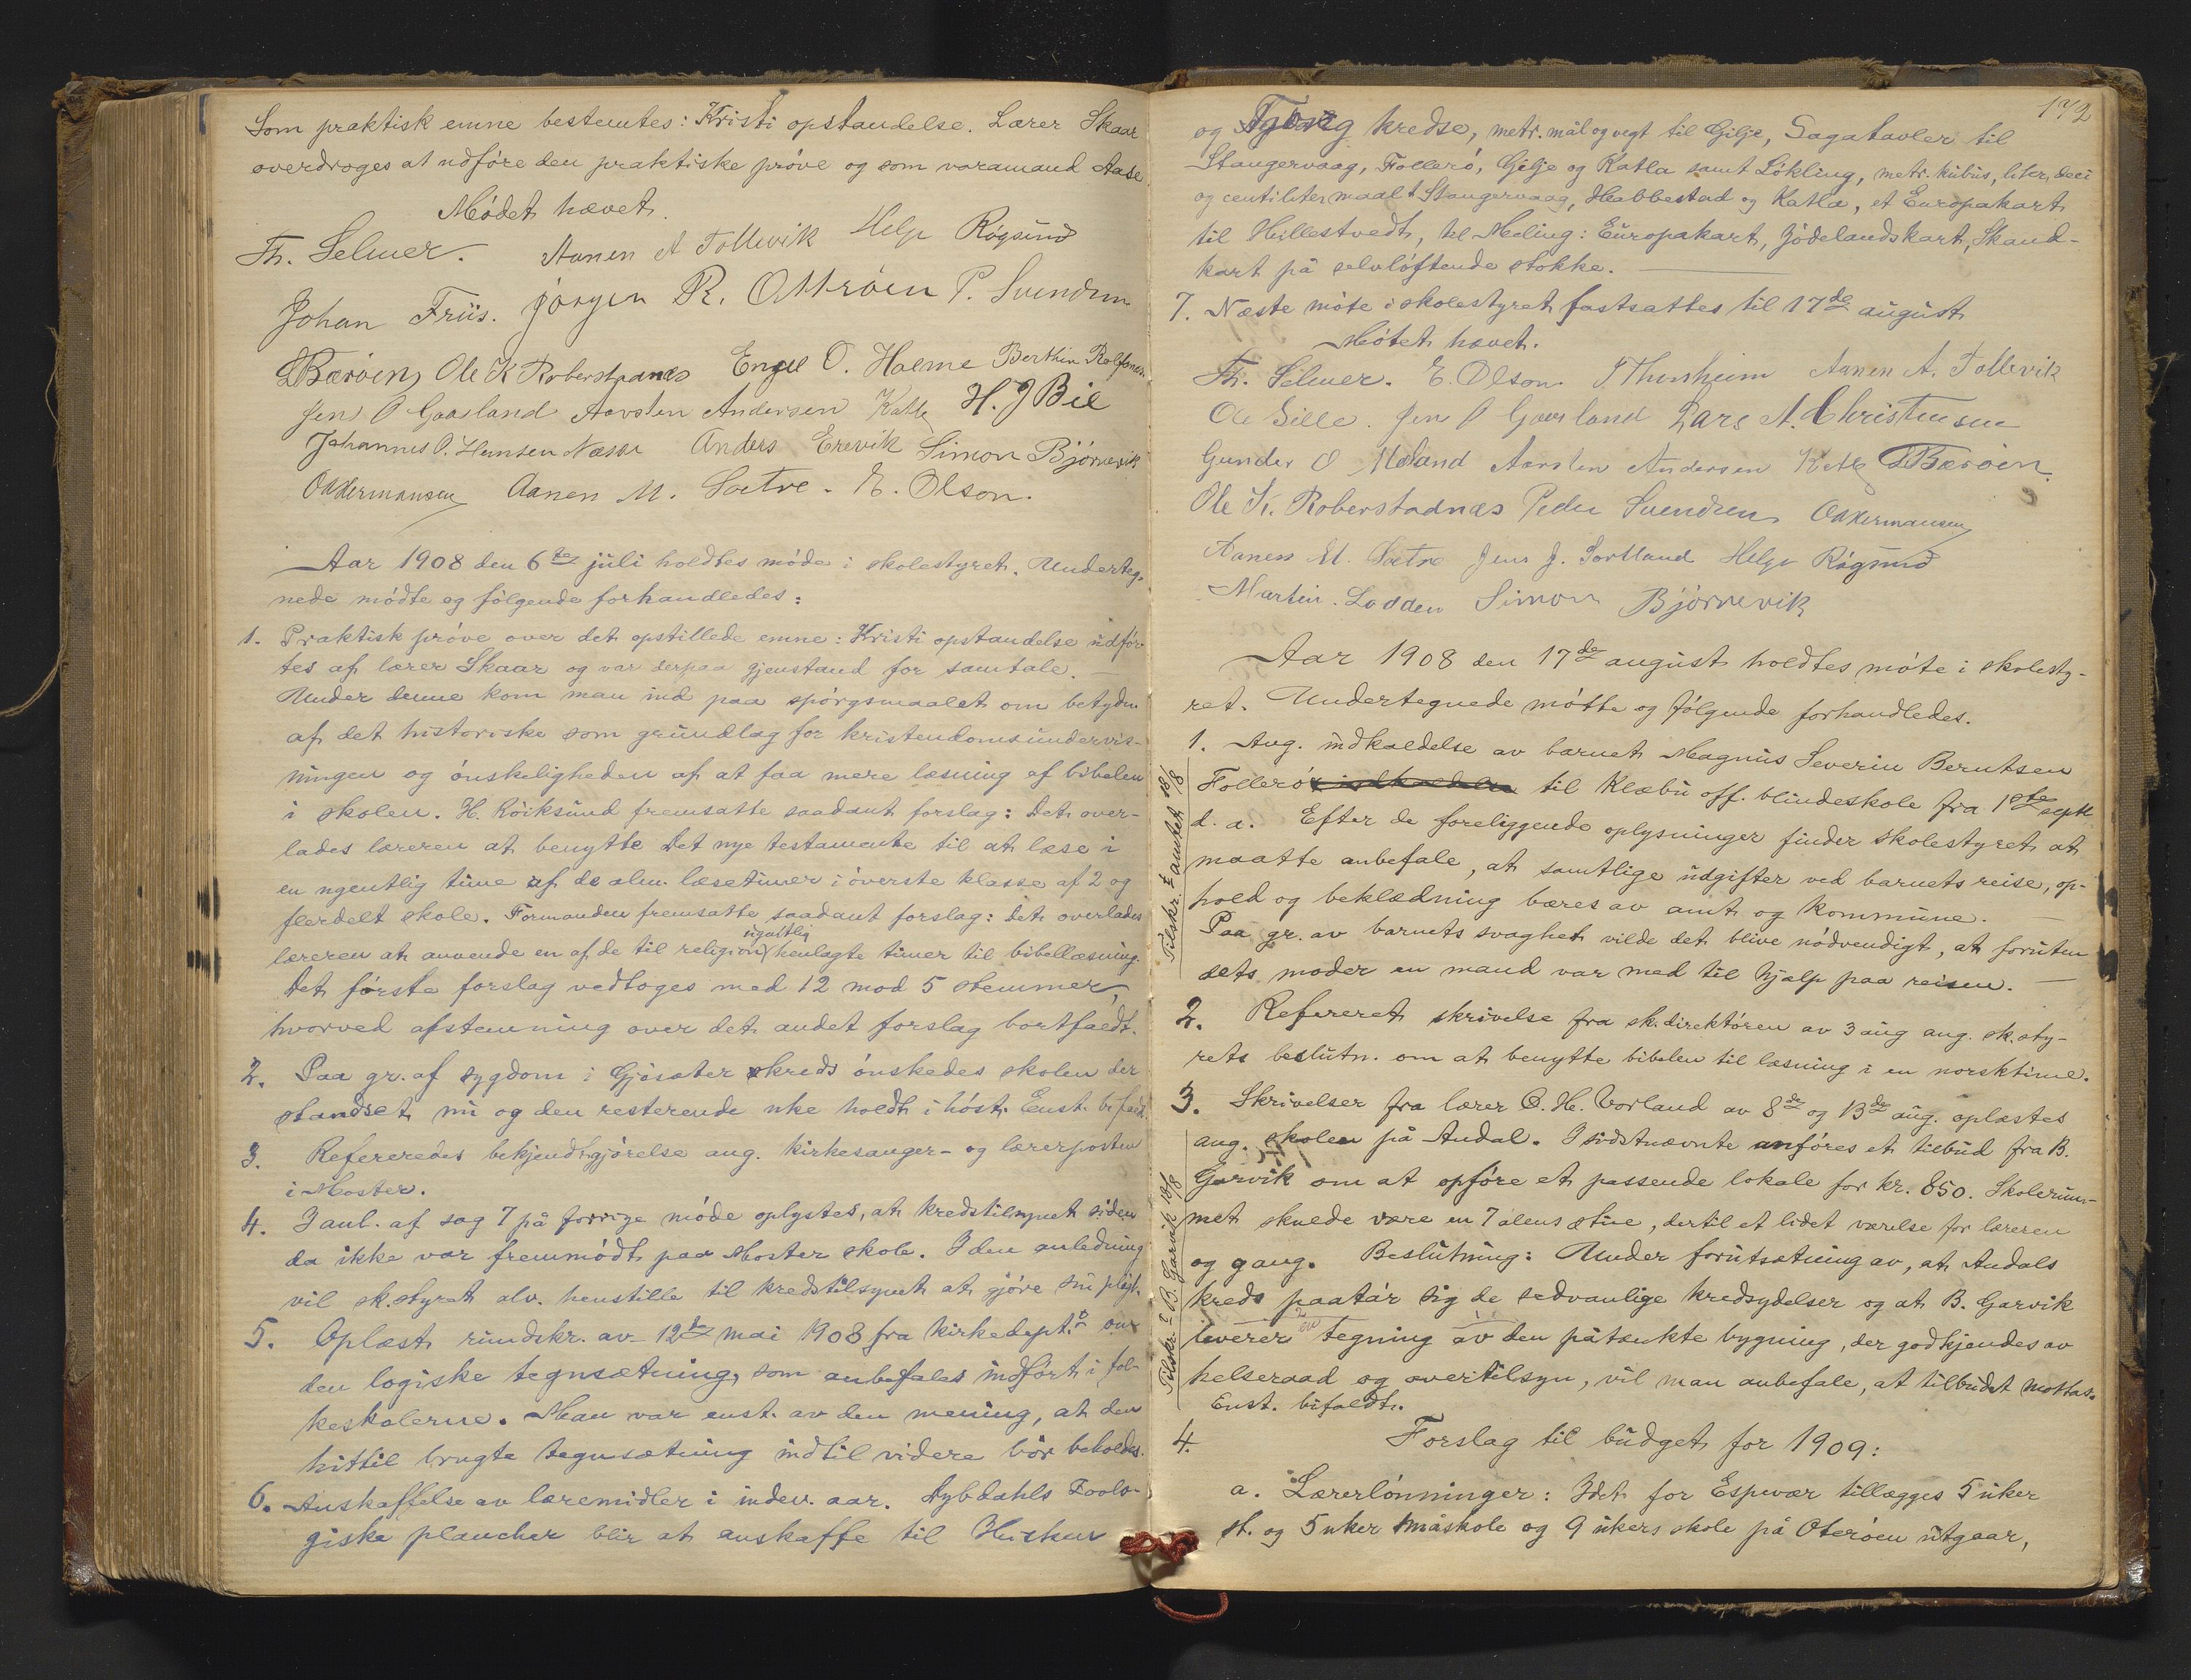 Som praktisk emne bestemtes: Kristi opstandelse. Lærer Skaar
overdroges at udføre den praktiske prøve og som varamand Aase
Mødet hævet.
Fr. Selmer. Aanen A Tollevik Helge Røgsund
Johan Friis. Jørgen R. Ottrøen P. Svendsen
LBærøen, Ole K Roberstadnæs Engel O. Holme Berthin Rolfsnes.
Jens O Gaasland Aarsten Andersen Katle H. J Bie
Johannes O. Hansen Næsse Anders Erevik Simon Bjørnevik
OHermansen Aanen M. Sætre. E. Olson.
Aar 1908 den 6te juli holdtes møde i skolestyret. Underteg-
nede mødte og følgende forhandledes:
1. Praktisk prøve over det opstillede emne: Kristi opstandelse udfør-
tes af lærer Skaar og var derpaa gjenstand for samtale. —
Under denne kom man ind paa spørgsmaalet om betydn.
af det historiske som grundlag for kristendomsundervis-
ningen og ønskeligheden af at faa mere læsning af bibelen
i skolen. H. Røiksund fremsatte saadant forslag: Det over-
lades læreren at benytte Det nye testamente til at læse i
en ugentlig time af de alm. læsetimer i øverste klasse af 2 og
flerdelt skole. Formanden fremsatte saadant forslag: Det overlades
læreren at anvende en af de til religion ugentlig henlagte timer til bibellæsning.
Det første forslag vedtoges med 12 mod 5 stemmer,
hvorved afstemning over det andet forslag bortfaldt.
2. Paa gr. af sygdom i Gjøsæter skreds ønskedes skolen der
standset nu og den resterende uke holdt i høst. Enst. bifaldt.
3. Refereredes bekjendtgjørelse ang. kirkesanger- og lærerposten
i Moster.
4. I anl. af sag 7 på forrige møde oplystes, at kredstilsynet siden
da ikke var fremmødt paa Moster skole. I den anledning
vil sk.styret alv. henstille til kredstilsynet at gjøre sin pligt.
5. Oplæst rundskr. av 12te mai 1908 fra Kirkedept. om
den logiske tegnsætning, som anbefales indført i fol-
keskolerne. Man var enst. av den mening, at den
hittil brugte tegnsætning indtil videre bør beholdes.
6. Anskaffelse av læremidler i indev. aar. Dybdahls Zoolo-
giske plancher blir at anskaffe til Hisken
172
og kredse, metr. mål og vegt til Gilje, Sagatavler til
Stangervaag, Follerø, Gilje og Katla samt Løkling, metr. kubus, liter, deci
og centilitermaal t Stangervaag, Habbestad og Katla, et Europakart
til Hillestvedt, til Meling: Europakart, Jødelandskart, Skand-
kart på selvløftende stokke. —
7. Næste møte i skolestyret fastsattes til 17de august
Møtet hævet.
Fr. Selmer. E. Olson. T Thorsheim Aanen A. Tollevik
Ole Lille. Jens O Gaasland Lars A. Christensen
Gunder O Meland Aarsten Andersen Katle LBærøen.
Ole K. Roberstadnæs Peder Svendsen OHermansen
Aanen M. Sætre Jens J. Sortland Helge Røgsund
Martin. Lodden Simon Bjørnevik
Aar 1908 den 17de august holdtes møte i skolesty-
ret. Undertegnede møtte og følgende forhandledes.
1. Ang. indkaldelse av barnet Magnus Severin Berntsen
Follerø indkaldelse til Klæbu off. blindeskole fra 1ste septb
d. a. Efter de foreliggende oplysninger finder skolestyret at
maatte anbefale, at samtlige udgifter ved barnets reise, op-
hold og beklædning bæres av amt og kommune. —
Paa gr. av barnets svaghet vilde det blive nødvendigt, at foruten
dets moder en mand var med til hjælp paa reisen. —
Tilskr. t amtet 18/8
2. Referert skrivelse fra sk.direktøren av 3 aug ang. sk.sty-
rets beslutn. om at benytte bibelen til læsning i en norsktime.
3. Skrivelser fra lærer O. H. Vorland av 8de og 13de aug. oplæstes
ang. skolen på Andal. I sidstnævnte anføres et tilbud fra B.
Garvik om at opføre et passende lokale for kr. 850. Skolerum-
met skulde være en 7 alens stue, dertil et lidet værelse for læreren
og gang. Beslutning: Under forutsætning av, at Andals
kreds paatar sig de sedvanlige kredsydelser og at B. Garvik
leverer en tegning av den påtænkte bygning, der godkjendes av
helseraad og overtilsyn, vil man anbefale, at tilbudet mottas.
Enst. bifaldt.
Tilskr. B. Garvik
4. Forslag til budget for 1909:
a. Lærerlønninger: Idet for Espevær tillægges 5 uker
st. og 5 uker småskole og 9 ukers skole på Oterøen utgaar,